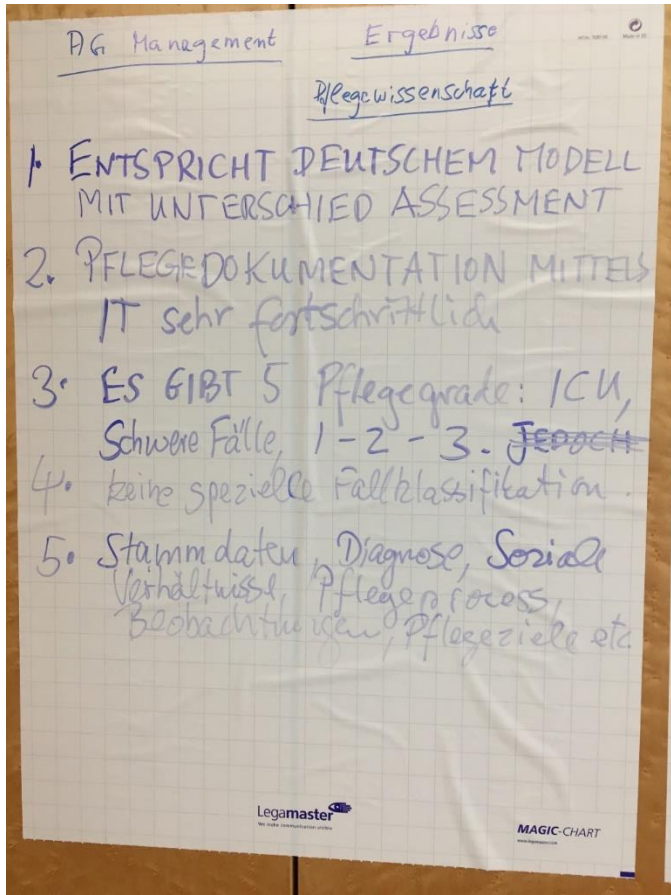 AG Management Ergebnisse
Pflegewissenschaft
1. ENTSPRICHT DEUTSCHEM MODELL
MIT UNTERSCHIED ASSESSMENT
2. PFLEGEDOKUMENTATION MITTELS
IT sehr fortschrittlich
3. ES GIBT 5 Pflegegrade: ICU,
Schwere Fälle, 1-2-3. JEDOCH
4. keine spezielle Fallklassifikation.
5. Stammdaten, Diagnose, Soziale
Verhältnisse, Pflegeprocess,
Beobachtungen, Pflegeziele etc.
Legamaster
We make communication visible
MAGIC-CHART
www.legamaster.com